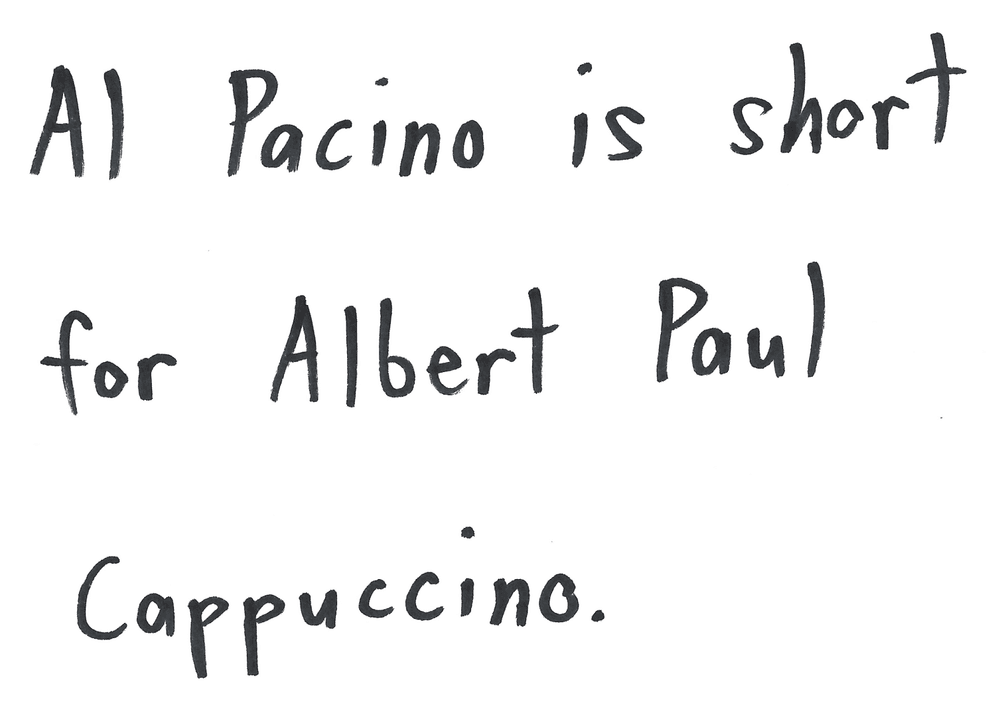 Al Pacino is short
for Albert Paul
Cappuccino.